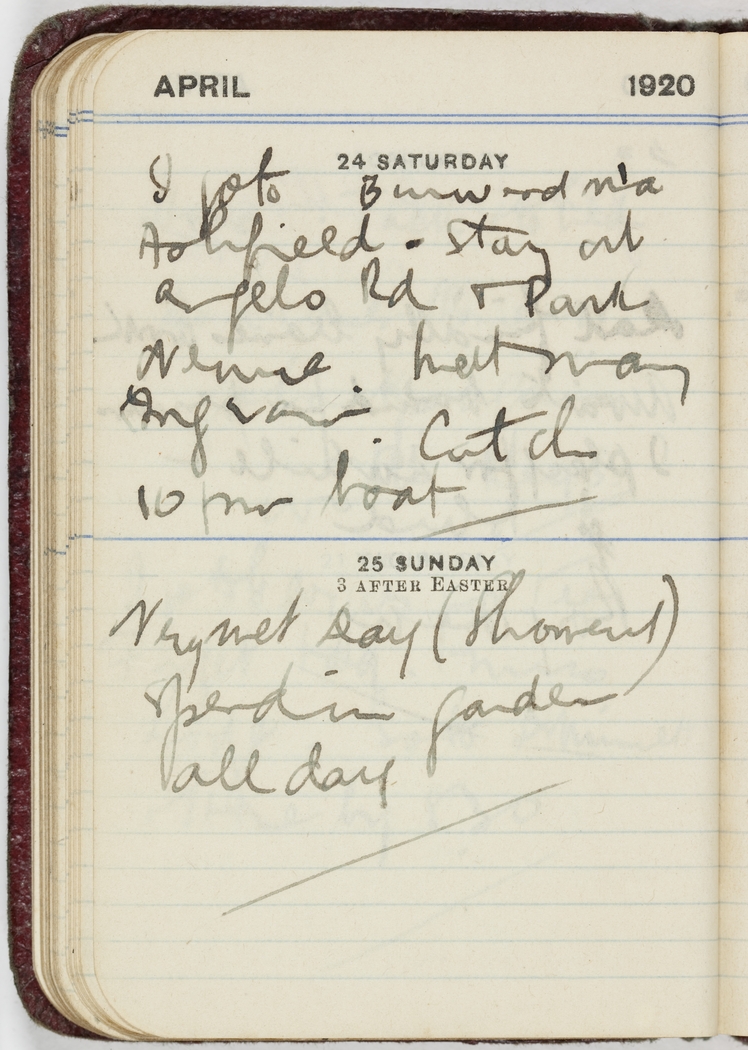 APRIL 1920
24 SATURDAY
I go to Burwood via
Ashfield - Stay at
Angelo Rd & Park
Avenue
Catch
10 pm boat
25 SUNDAY
3 AFTER EASTER
Very wet day (Showery)
Spend in garden
all day